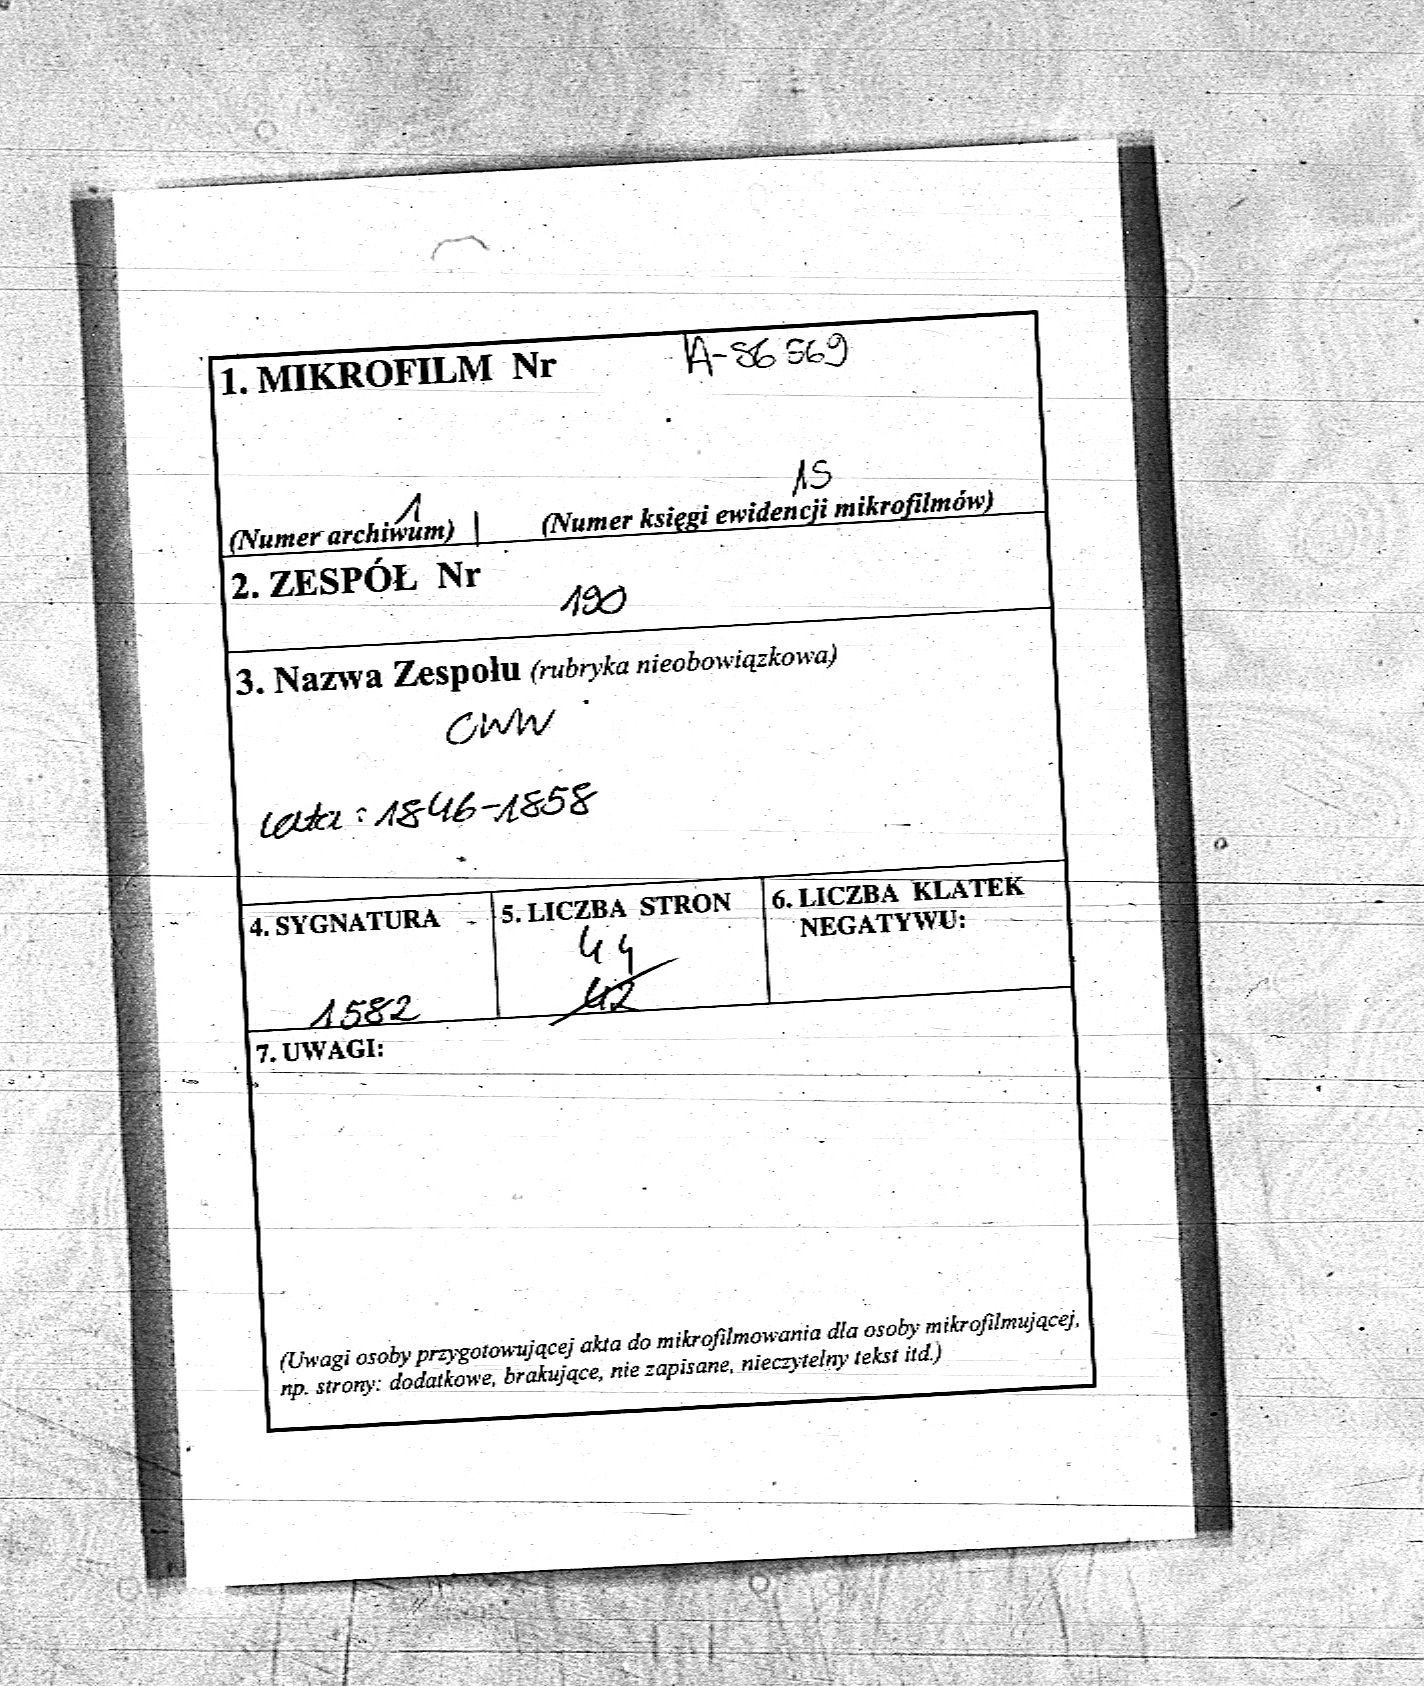 1. MIKROFILM Nr A-86569
1 15
(Numer archiwum) (Numer księgi ewidencji mikrofilmów)
2. ZESPÓŁ Nr
190
3. Nazwa Zespołu (rubryka nieobowiązkowa)
CWW
lata: 1846-1858
4. SYGNATURA
1582
5. LICZBA STRON
44
42
6. LICZBA KLATEK
NEGATYWU:
7. UWAGI:
(Uwagi osoby przygotowującej akta do mikrofilmowania dla osoby mikrofilmującej,
np. strony: dodatkowe, brakujące, nie zapisane, nieczytelny tekst itd.)